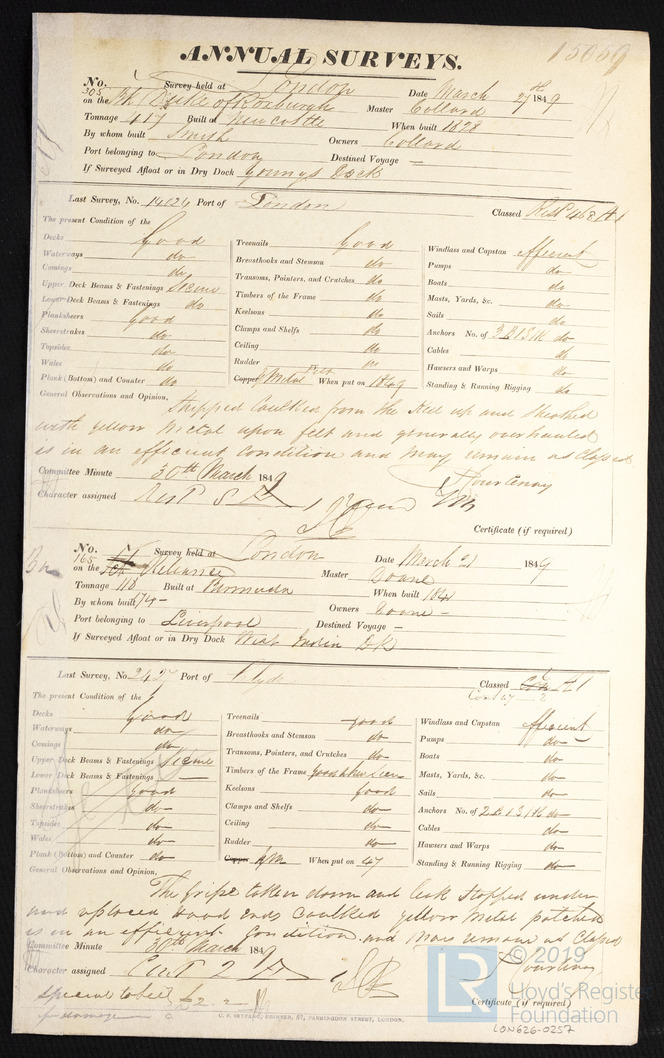 15059
ANNUAL SURVEYS.
No. 305 Survey held at London Date March 27th 1849
on the Bk Duke of Roxburgh Master Collard
Tonnage 417 Built at Newcastle When built 1828
By whom built Smith Owners Collard
Port belonging to London Destined Voyage —
If Surveyed Afloat or in Dry Dock Youngs Dock
Last Survey, No. 14024 Port of London Classed
The present Condition of the
Decks Good
Waterways do
Comings do
Upper Deck Beams & Fastenings Secure
Lower Deck Beams & Fastenings do
Planksheers Good
Sheerstrakes do
Topsides do
Wales do
Plank (Bottom) and Counter do
Treenails Good
Breasthooks and Stemson do
Transoms, Pointers, and Crutches do
Timbers of the Frame do
Keelsons do
Clamps and Shelfs do
Ceiling do
Rudder do
Copper Y Metal Felt When put on 1849
Windlass and Capstan efficient
Pumps do
Boats do
Masts, Yards, &c. do
Sails do
Anchors No. of 3 B 1 S 1 K do
Cables do
Hawsers and Warps do
Standing & Running Rigging do
General Observations and Opinion,
Stripped Caulked from the Keel up and sheathed
with yellow metal upon felt and generally overhauled
is in an efficient condition and may remain as Classed
Committee Minute 30th March 1849
Courtenay
Character assigned Rest
Certificate (if required)
No. 165 Survey held at London Date March 21 1849
on the Sch Reliance Master Doane
Tonnage 118 Built at Bermuda When built
By whom built Owners
Port belonging to Liverpool Destined Voyage —
If Surveyed Afloat or in Dry Dock West India Dk
Last Survey, No. 242 Port of Clyde Classed
The present Condition of the
Decks Good
Waterways do
Comings do
Upper Deck Beams & Fastenings Secure
Lower Deck Beams & Fastenings —
Planksheers good
Sheerstrakes do
Topsides do
Wales do
Plank (Bottom) and Counter do
Treenails good
Breasthooks and Stemson do
Transoms, Pointers, and Crutches do
Timbers of the Frame good where seen
Keelsons good
Clamps and Shelfs do
Ceiling do
Rudder do
Copper YM When put on 47
Windlass and Capstan efficient
Pumps do
Boats do
Masts, Yards, &c. do
Sails do
Anchors No. of 2 B 1 S 1 K do
Cables do
Hawsers and Warps do
Standing & Running Rigging do
General Observations and Opinion,
The gripe taken down and leak stopped under
and replaced hood ends caulked yellow metal patched
is in an efficient condition and may remain as Classed
Committee Minute 30th March 1849
Courtenay
Character assigned Cont 2
Certificate (if required)
special to be £2
damage
C. F. SEYFANG, PRINTER, 57, FARRINGDON STREET, LONDON.
LR
© 2019
Lloyd's Register
Foundation
LON626-0257